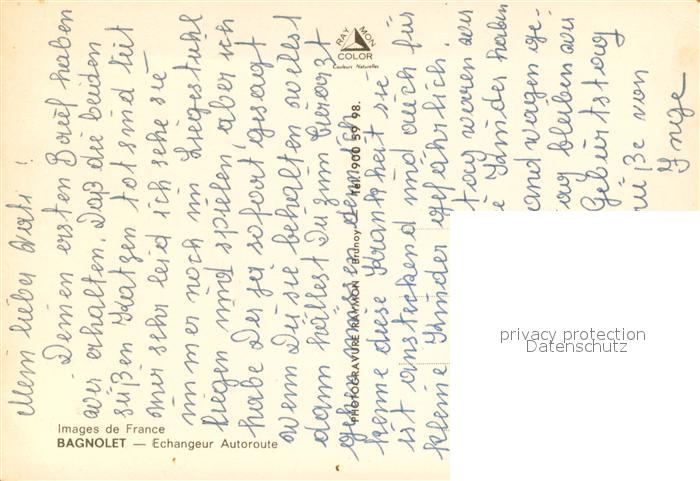 Mein lieber Vati!
Deinen ersten Brief haben
wir erhalten. Daß die beiden
süßen Katzen tot sind tut
mir sehr leid ich sehe sie
immer noch im Liegestuhl
liegen und spielen, aber ich
habe Dir ja sofort gesagt
wenn Du sie behalten willst
dann hättest Du zum Tierarzt
gehen müssen, denn ich
kenne diese Krankheit sie
ist ansteckend und auch für
kleine Kinder gefährlich.
tag waren wir
Kinder haben
and wagen ge-
tag bleiben wir
Geburtstag
üße von
Inge
RAY MON
COLOR
Couleurs Naturelles
PHOTOGRAVURE RAYMON Brunoy — Tél. 900 59 98.
Images de France
BAGNOLET — Echangeur Autoroute
privacy protection
Datenschutz